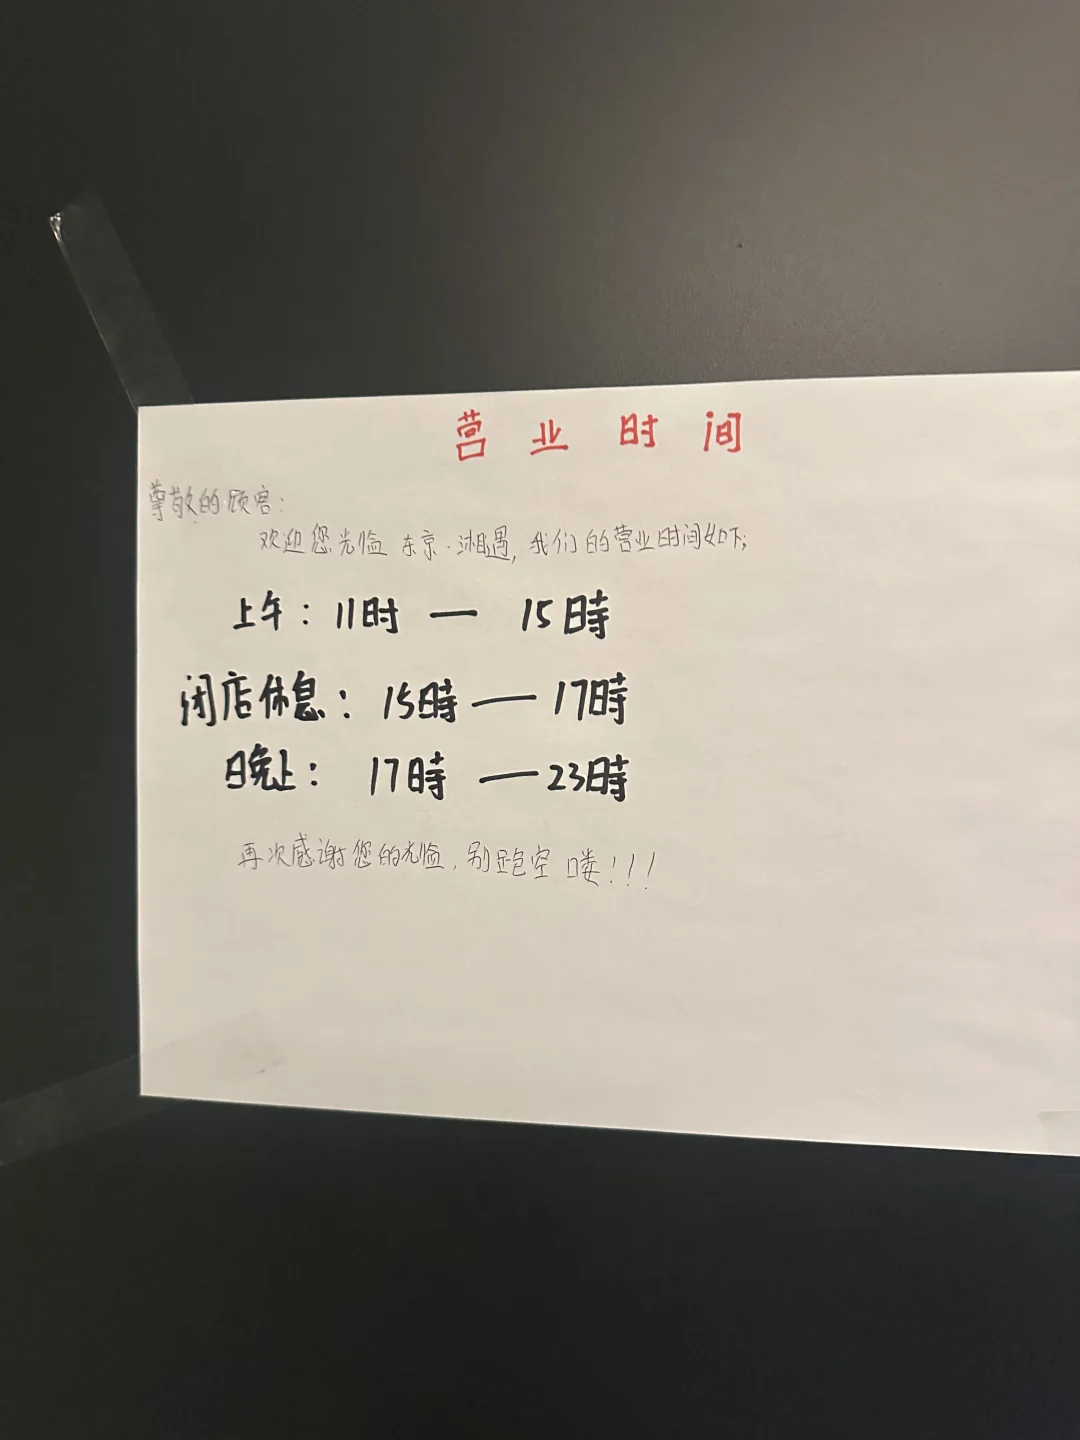 营业时间
尊敬的顾客：
欢迎您光临 东京·湘遇，我们的营业时间如下；
上午：11时 — 15時
闭店休息：15時 — 17時
晚上：17時 — 23時
再次感谢您的光临，别跑空喽！！！